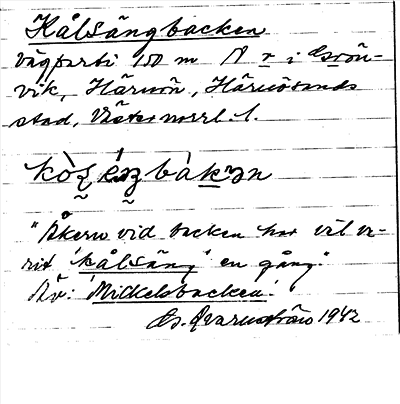 Kålsängbacken
vägparti 150 m N r i Grön-
vik, Härnön, Härnösands
stad, Västernorrl. l.
"Åkern vid backen har väl va-
rit 'kålsäng' en gång".
Äv: 'Mickelsbacken'.
G. Qvarnström 1942